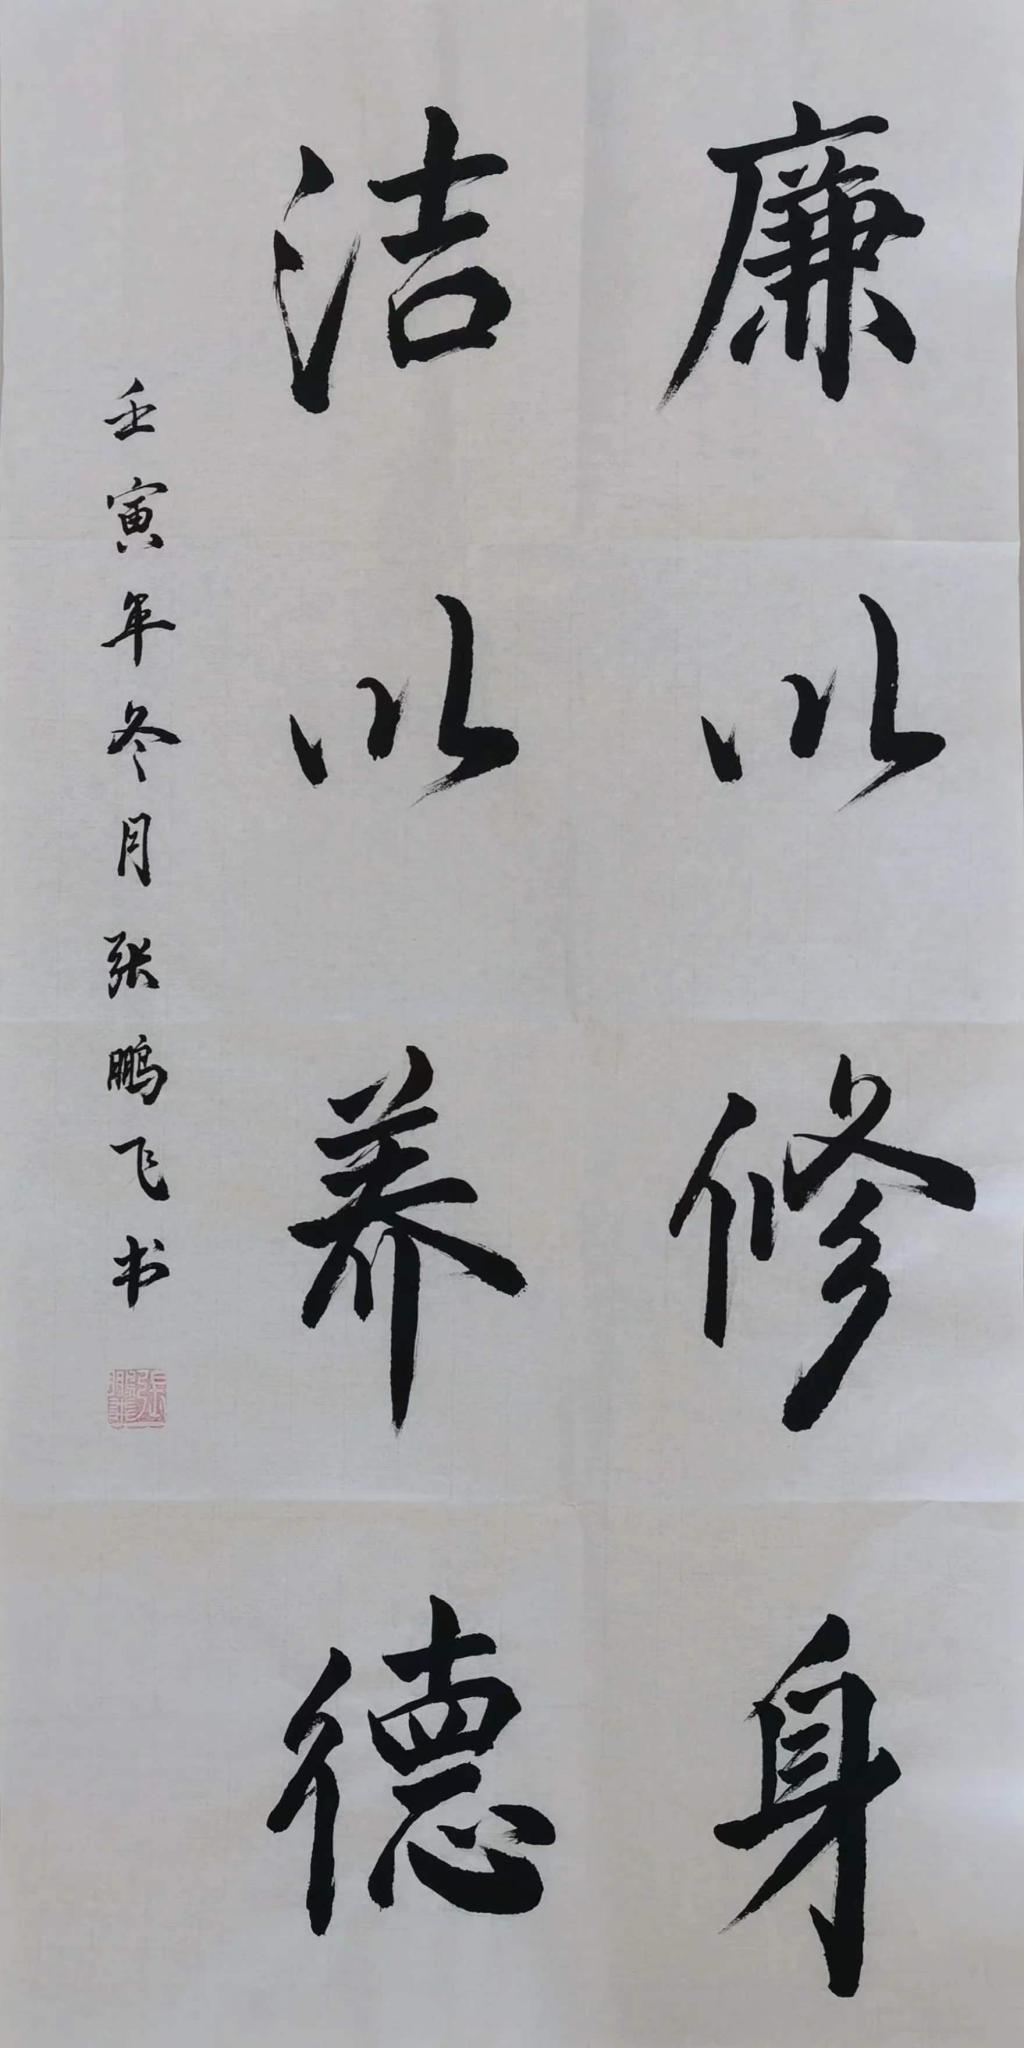 廉以修身
洁以养德
壬寅年冬月张鹏飞书